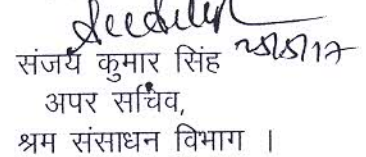 संजय कुमार सिंह 25/5/17
अपर सचिव,
श्रम संसाधन विभाग ।